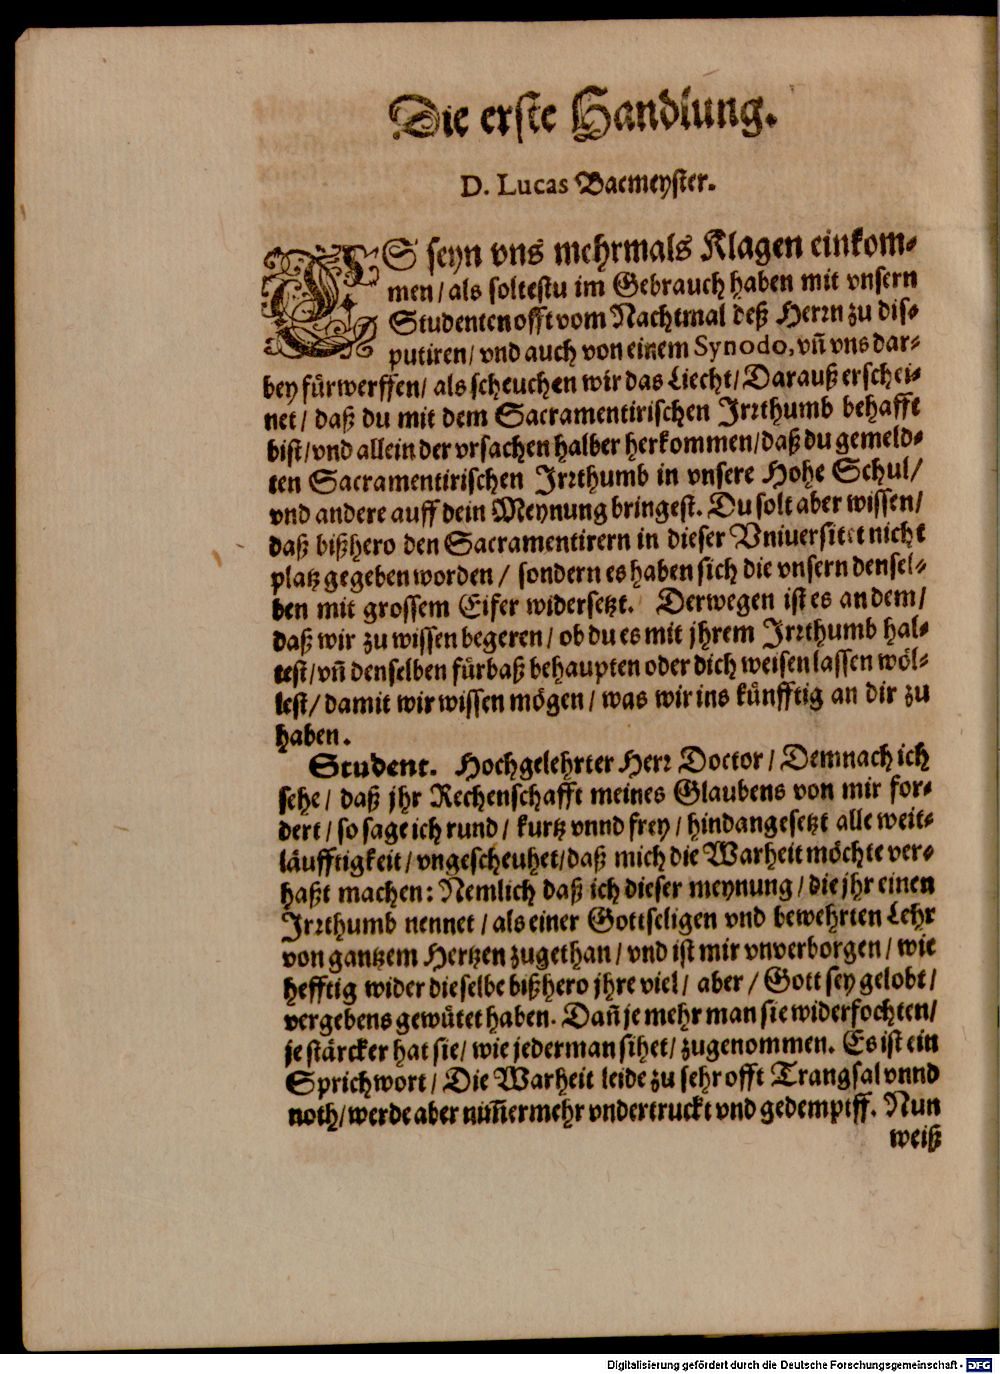 Die erste Handlung.
D. Lucas Bacmeyster.
ES seyn vns mehrmals Klagen einkom-
men / als soltestu im Gebrauch haben mit vnsern
Studenten offt vom Nachtmal deß Herrn zu dis-
putiren / vnd auch von einem Synodo, vñ vns dar-
bey fürwerffen / als scheuchen wir das Liecht / Darauß erschei-
net / daß du mit dem Sacramentirischen Irrthumb behafft
bist / vnd allein der vrsachen halber herkommen / daß du gemeld-
ten Sacramentirischen Irrthumb in vnsere Hohe Schul /
vnd andere auff dein Meynung bringest. Du solt aber wissen /
daß bißhero den Sacramentirern in dieser Vniuersitet nicht
platz gegeben worden / sondern es haben sich die vnsern densel-
ben mit grossem Eifer widersetzt. Derwegen ist es an dem /
daß wir zu wissen begeren / ob du es mit jhrem Irrthumb hal-
test / vñ denselben fürbaß behaupten oder dich weisen lassen wöl-
lest / damit wir wissen mögen / was wir ins künfftig an dir zu
haben.
Student. Hochgelehrter Herr Doctor / Demnach ich
sehe / daß jhr Rechenschafft meines Glaubens von mir for-
dert / so sage ich rund / kurtz vnnd frey / hindangesetzt alle weit-
läufftigkeit / vngescheuhet / daß mich die Warheit möchte ver-
haßt machen: Nemlich daß ich dieser meynung / die jhr einen
Irrthumb nennet / als einer Gottseligen vnd bewehrten Lehr
von gantzem Hertzen zugethan / vnd ist mir vnverborgen / wie
hefftig wider dieselbe bißhero jhre viel / aber / Gott sey gelobt /
vergebens gewütet haben. Dañ je mehr man sie widerfochten /
je stärcker hat sie / wie jederman sihet / zugenommen. Es ist ein
Sprichwort / Die Warheit leide zu sehr offt Trangsal vnnd
noth / werde aber nim̃ermehr vndertruckt vnd gedempfft. Nun
weiß
Digitalisierung gefördert durch die Deutsche Forschungsgemeinschaft - DFG